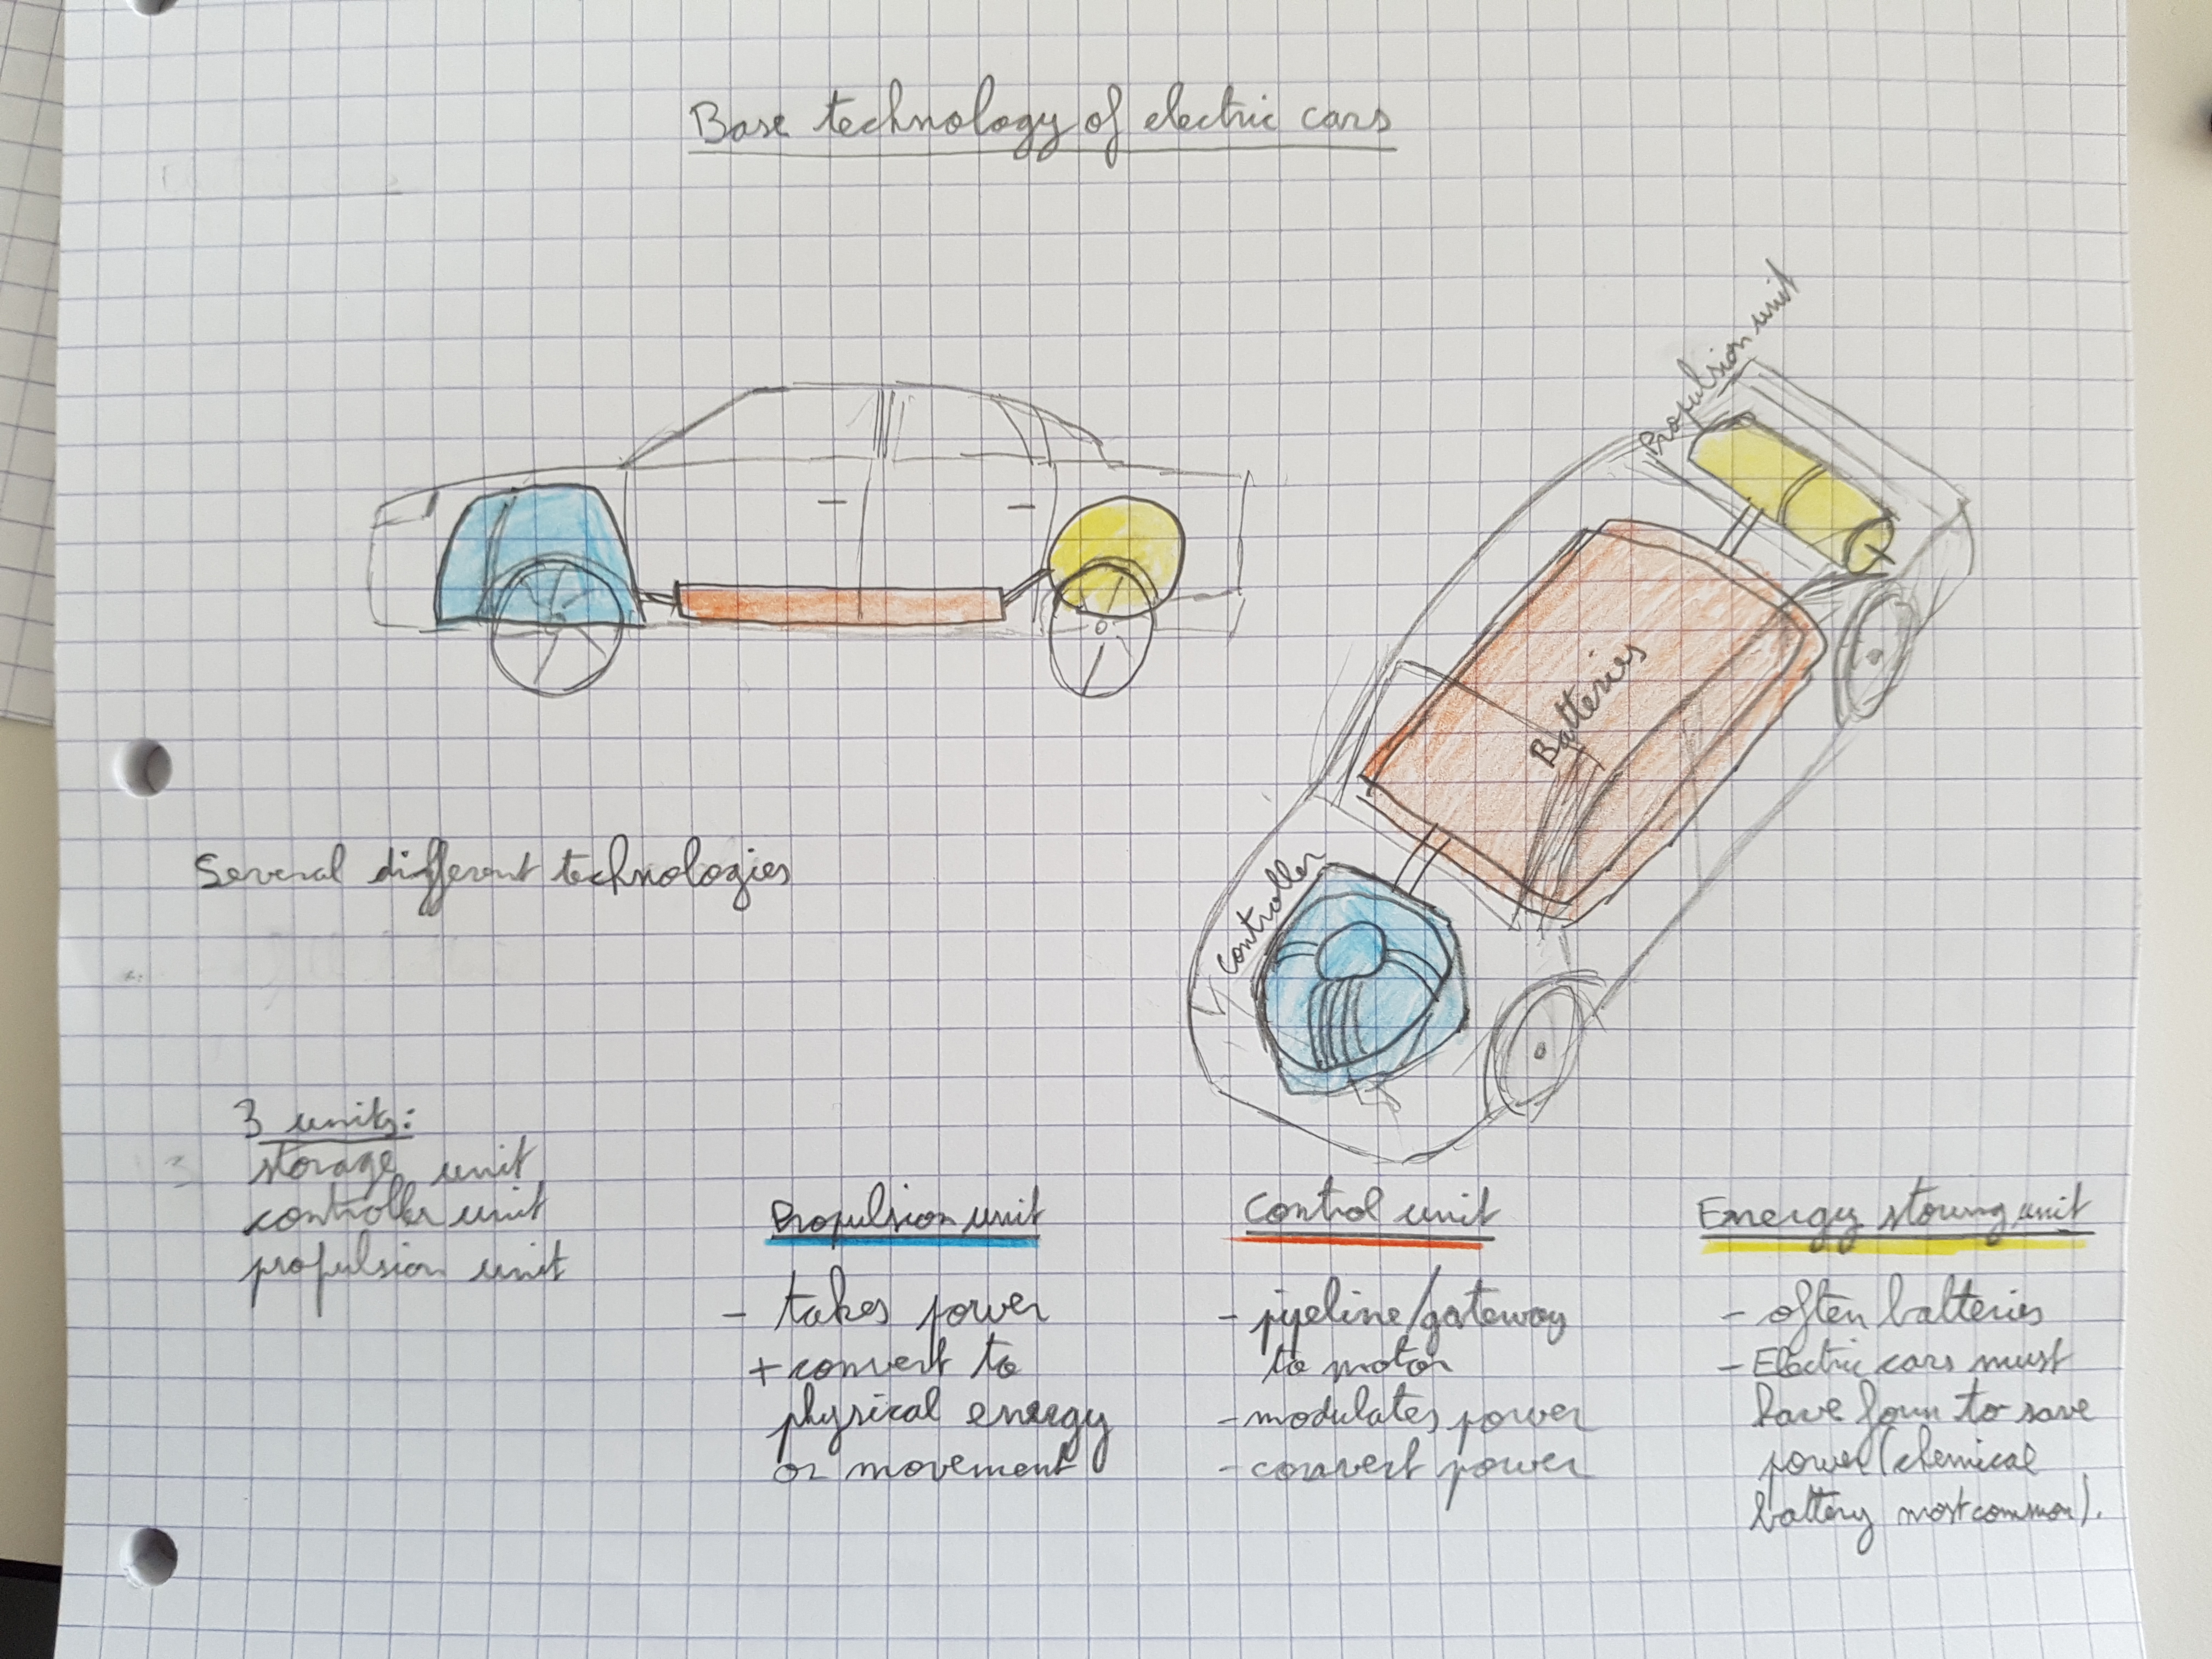 Base technology of electric cars
Propulsion unit
Batteries
Controller
Several different technologies
3 units:
storage unit
controller unit
propulsion unit
Propulsion unit
- takes power
+ convert to
physical energy
or movement
Control unit
- pipeline/gateway
to motor
- modulates power
- convert power
Energy storing unit
- often batteries
- Electric cars must
have form to save
power (chemical
battery most common).